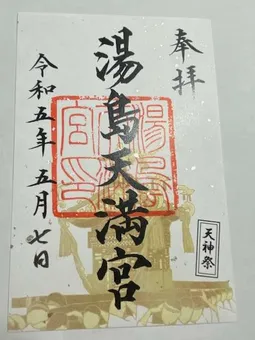 奉拝
湯島天満宮
湯島天満宮印
天神祭
令和五年五月七日